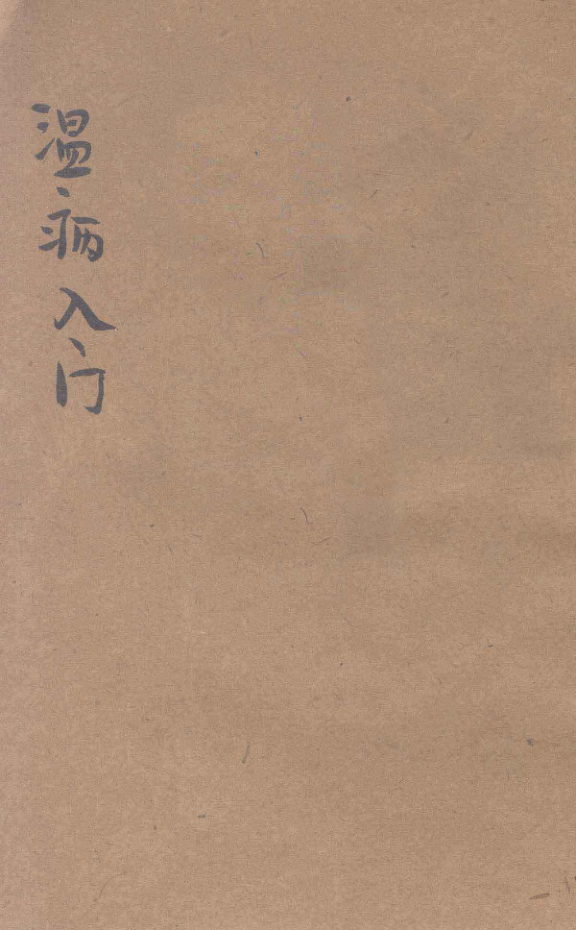 温病入门